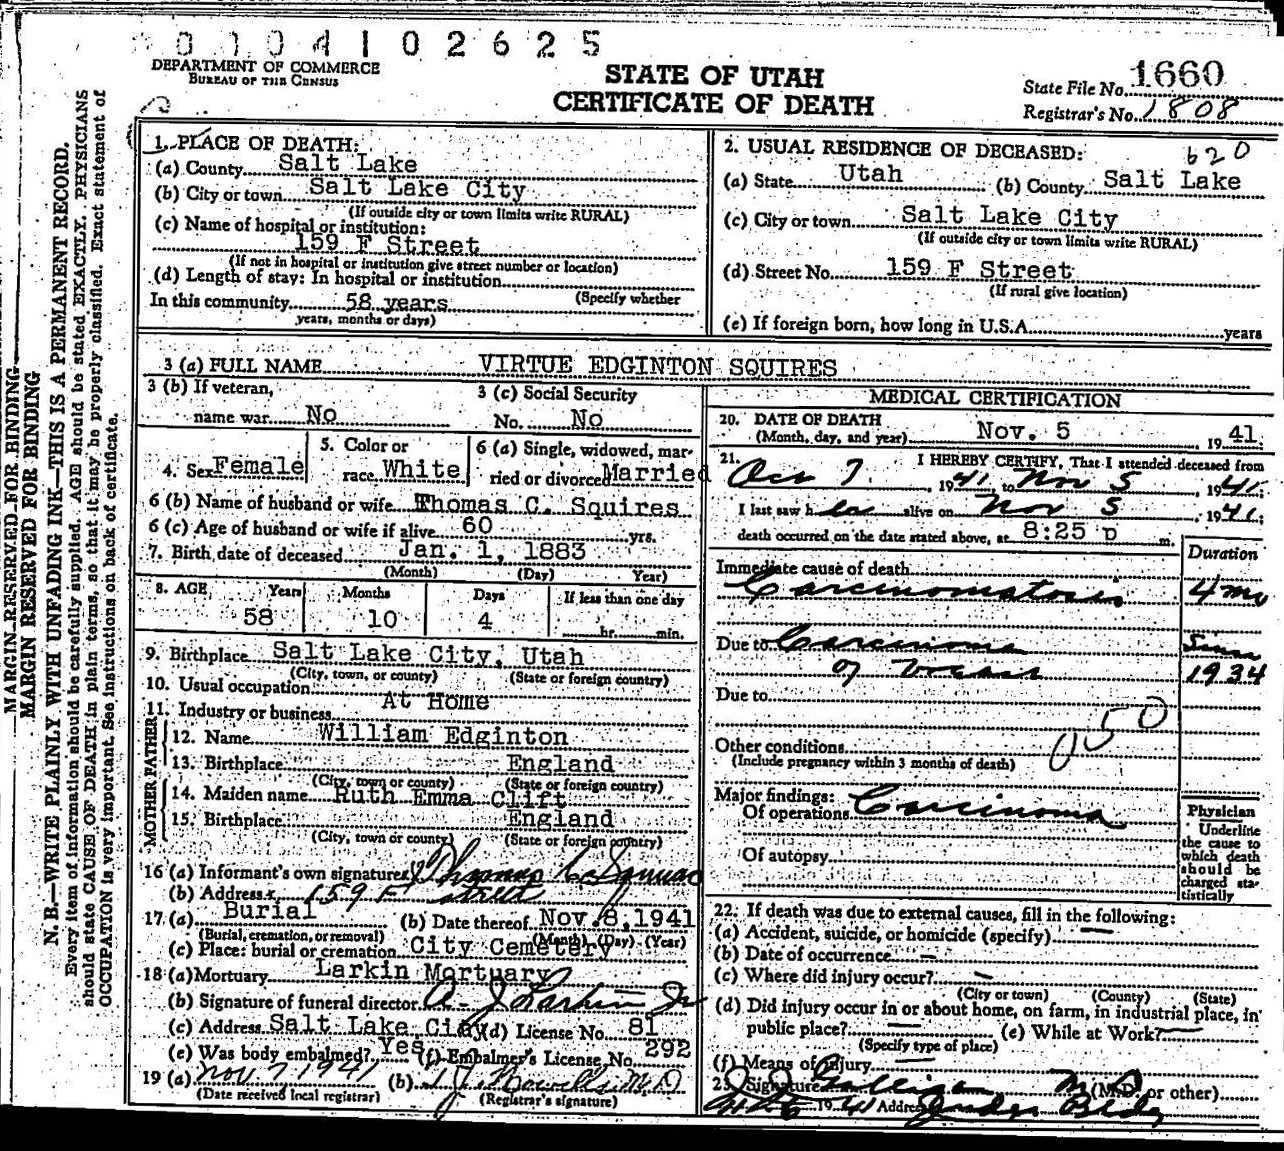 0 1 0 4 1 0 2 6 2 5
DEPARTMENT OF COMMERCE
BUREAU OF THE CENSUS
STATE OF UTAH
CERTIFICATE OF DEATH
State File No. 1660
Registrar's No. 1808
1. PLACE OF DEATH:
(a) County Salt Lake
(b) City or town Salt Lake City
(If outside city or town limits write RURAL)
(c) Name of hospital or institution:
159 F Street
(If not in hospital or institution give street number or location)
(d) Length of stay: In hospital or institution
(Specify whether
In this community 58 years
years, months or days)
2. USUAL RESIDENCE OF DECEASED: 620
(a) State Utah (b) County Salt Lake
(c) City or town Salt Lake City
(If outside city or town limits write RURAL)
(d) Street No. 159 F Street
(If rural give location)
(e) If foreign born, how long in U.S.A. years
3 (a) FULL NAME VIRTUE EDGINTON SQUIRES
3 (b) If veteran,
name war No
3 (c) Social Security
No. No
4. Sex Female
5. Color or
race White
6 (a) Single, widowed, mar-
ried or divorced Married
6 (b) Name of husband or wife Thomas C. Squires
6 (c) Age of husband or wife if alive 60 yrs.
7. Birth date of deceased Jan. 1, 1883
(Month) (Day) Year)
8. AGE Years Months Days If less than one day
58 10 4 hr. min.
9. Birthplace Salt Lake City, Utah
(City, town, or county) (State or foreign country)
10. Usual occupation At Home
11. Industry or business
FATHER
12. Name William Edginton
13. Birthplace England
(City, town or county) (State or foreign country)
MOTHER
14. Maiden name Ruth Emma Clift
15. Birthplace England
(City, town or county) (State or foreign country)
16 (a) Informant's own signature Thomas C. Squires
(b) Address 159 F Street
17 (a) Burial (b) Date thereof Nov. 8, 1941
(Burial, cremation, or removal) (Month) (Day) (Year)
(c) Place: burial or cremation City Cemetery
18 (a) Mortuary Larkin Mortuary
(b) Signature of funeral director A. J. Larkin Jr
(c) Address Salt Lake City (d) License No. 81
(e) Was body embalmed? Yes (f) Embalmer's License No. 292
19 (a) Nov. 7 1941 (b) M.D.
(Date received local registrar) (Registrar's signature)
MEDICAL CERTIFICATION
20. DATE OF DEATH
(Month, day, and year) Nov. 5, 1941
21. I HEREBY CERTIFY, That I attended deceased from
Oct 7, 1941 to Nov 5, 1941
I last saw her alive on Nov 5, 1941
death occurred on the date stated above, at 8:25 p m.
Duration
Immediate cause of death
Carcinomatosis 4 mo
Due to Carcinoma Since
of breast 1934
Due to
050
Other conditions
(Include pregnancy within 3 months of death)
Major findings:
Of operations Carcinoma
Of autopsy
Physician
Underline
the cause to
which death
should be
charged sta-
tistically
22. If death was due to external causes, fill in the following:
(a) Accident, suicide, or homicide (specify) —
(b) Date of occurrence —
(c) Where did injury occur? —
(City or town) (County) (State)
(d) Did injury occur in or about home, on farm, in industrial place, in
public place? — (e) While at Work? —
(Specify type of place)
(f) Means of Injury —
23. Signature M D (M.D. or other)
1941 Address Judge Bldg
MARGIN RESERVED FOR BINDING
MARGIN RESERVED FOR BINDING
N. B.—WRITE PLAINLY WITH UNFADING INK—THIS IS A PERMANENT RECORD.
Every item of information should be carefully supplied. AGE should be stated EXACTLY. PHYSICIANS
should state CAUSE OF DEATH in plain terms, so that it may be properly classified. Exact statement of
OCCUPATION is very important. See instructions on back of certificate.